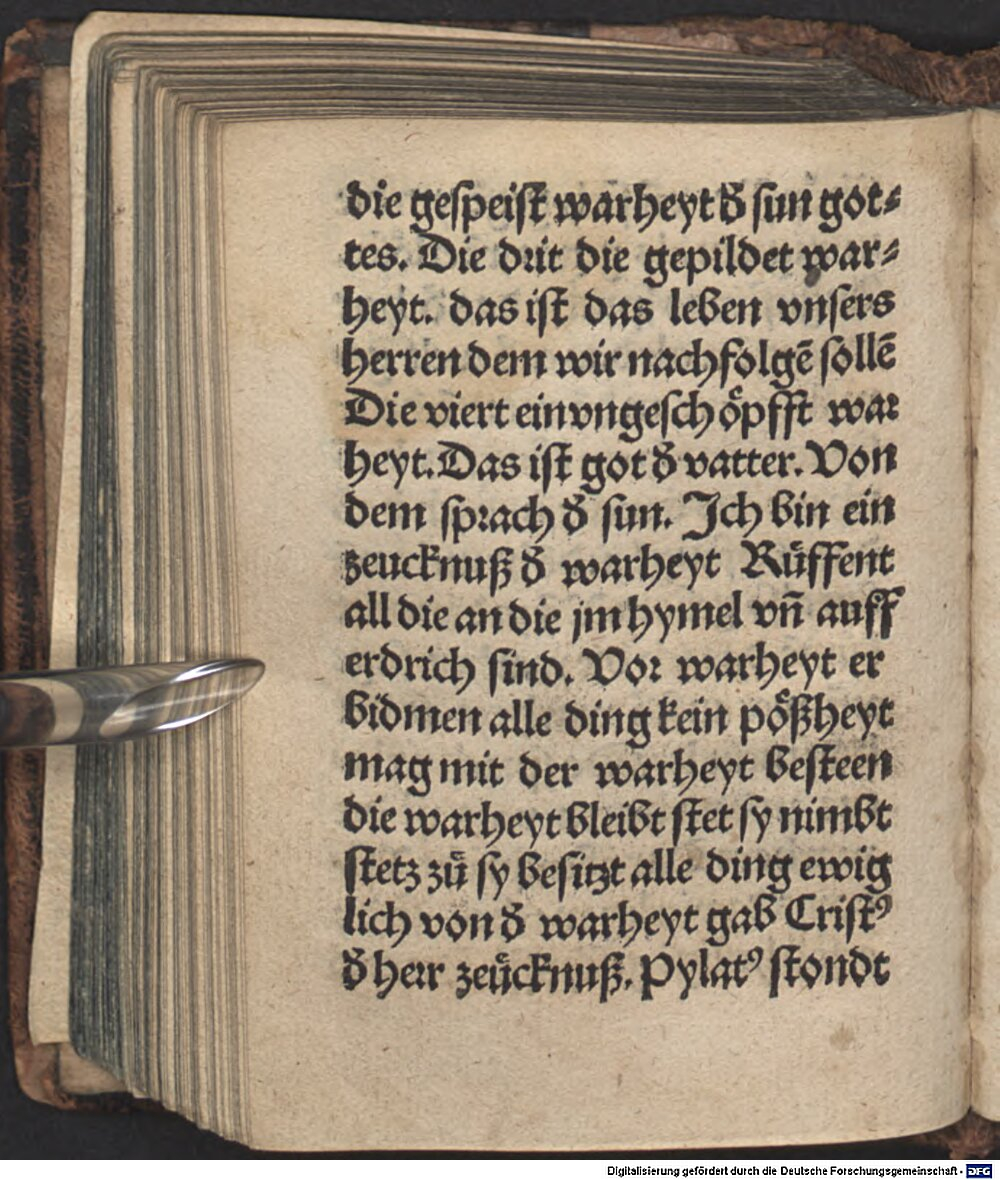 die geſpeiſt warheyt đ ſun got⸗
tes. Die drit die gepildet war⸗
heyt. das iſt das leben vnſers
herren dem wir nachfolgē ſollē
Die viert ein vngeſchoͤpfft war
heyt. Das iſt got đ vatter. Von
dem ſprach đ ſun. Ich bin ein
zeucknuß đ warheyt Ruͤffent
all die an die jm hymel vn̄ auff
erdrich ſind. Vor warheyt er
bidmen alle ding kein poͤßheyt
mag mit der warheyt beſteen
die warheyt bleibt ſtet ſy nimbt
ſtetz zuͦ ſy beſitzt alle ding ewig
lich von đ warheyt gab Criſtꝰ
đ herr zeuͤcknuß. Pylatꝰ ſtondt
Digitalisierung gefördert durch die Deutsche Forschungsgemeinschaft - DFG